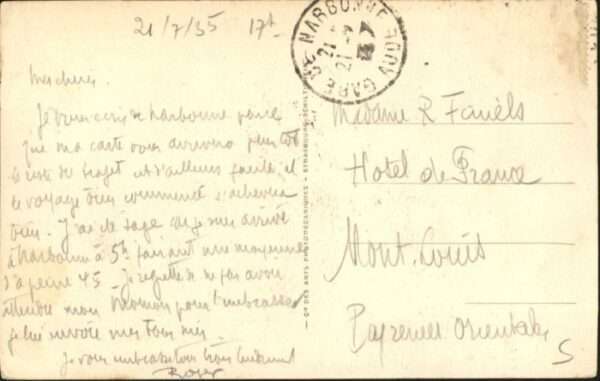 21/7/35 17h
Mes chéries.
Je vous écris de Narbonne parce
que ma carte vous arrivera plus tôt
le reste du trajet est d'ailleurs facile, et
le voyage bien commencé s'achèvera
bien. J'ai été sage car je suis arrivé
à Narbonne à 5h faisant une moyenne
d'à peine 45. Je regrette de ne pas avoir
attendu mon Momon pour l'embrasser
je lui envoie mes
Je vous embrasse toutes bien tendrement
Roger
GARE DE NARBONNE AUDE
21
Madame R Fauèls
Hotel de France
Mont. Louis
Pyrenées Orientales
Cie DES ARTS PHOTOMÉCANIQUES - STRASBOURG-SCHILTIGHEIM